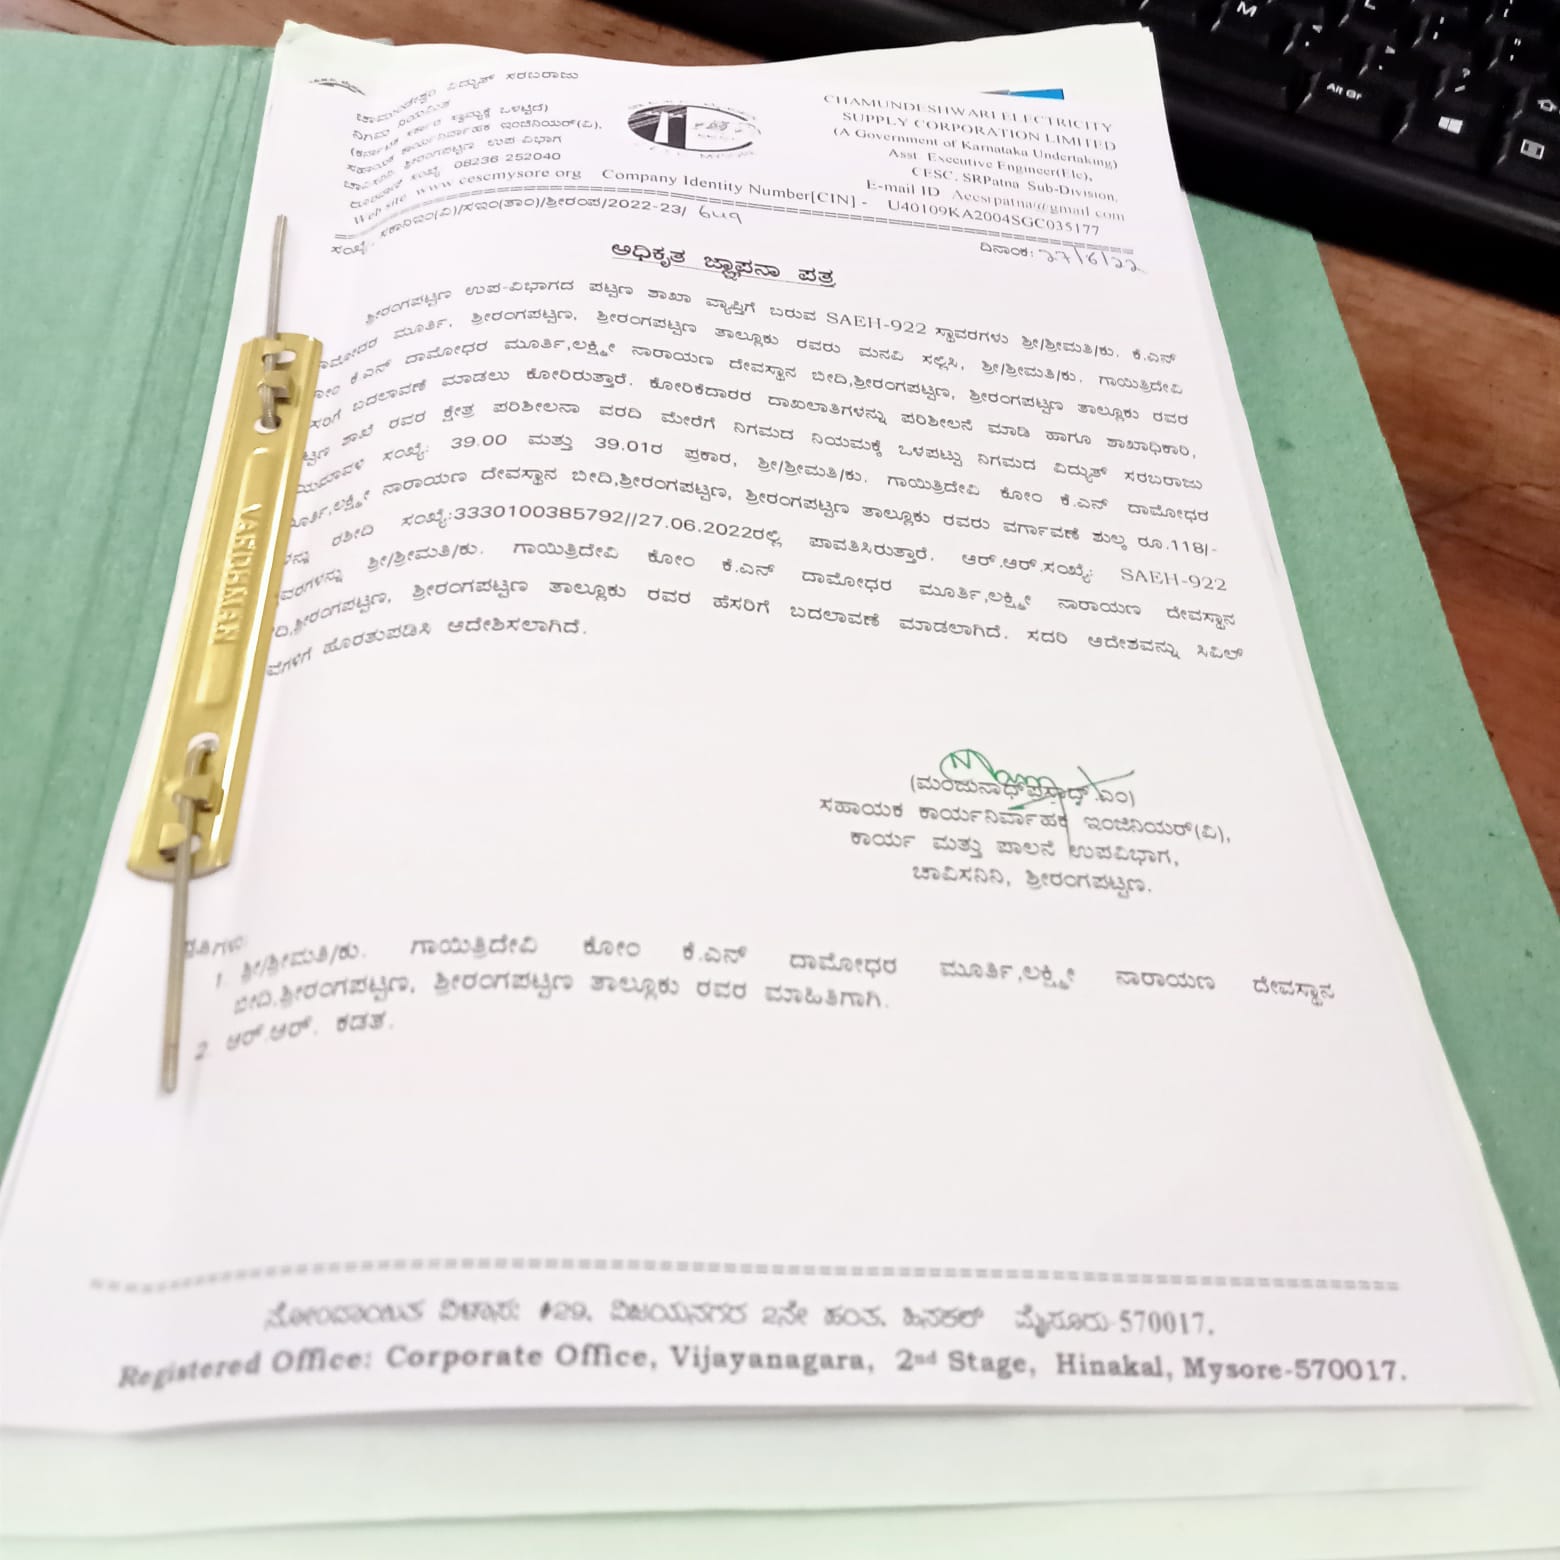 ಚಾಮುಂಡೇಶ್ವರಿ ವಿದ್ಯುತ್ ಸರಬರಾಜು
ನಿಗಮ ನಿಯಮಿತ
(ಕರ್ನಾಟಕ ಸರ್ಕಾರ ಸ್ವಾಮ್ಯಕ್ಕೆ ಒಳಪಟ್ಟಿದೆ)
ಸಹಾಯಕ ಕಾರ್ಯನಿರ್ವಾಹಕ ಇಂಜಿನಿಯರ್(ವಿ),
ಚಾವಿಸನಿನಿ ಶ್ರೀರಂಗಪಟ್ಟಣ ಉಪ ವಿಭಾಗ
ದೂರವಾಣಿ ಸಂಖ್ಯೆ 08236 252040
CHAMUNDESHWARI ELECTRICITY
SUPPLY CORPORATION LIMITED
(A Government of Karnataka Undertaking)
Asst Executive Engineer(Ele),
CESC, SRPatna Sub-Division,
E-mail ID Aeesrpatna@gmail com
Web site www cescmysore org Company Identity Number[CIN] - U40109KA2004SGC035177
ಸಂಖ್ಯೆ: ಸಕಾನಿಇಂ(ವಿ)/ಸಇಂ(ತಾಂ)/ಶ್ರೀರಂಪ/2022-23/ 649
ದಿನಾಂಕ: 27/6/22
ಅಧಿಕೃತ ಜ್ಞಾಪನಾ ಪತ್ರ
ಶ್ರೀರಂಗಪಟ್ಟಣ ಉಪ-ವಿಭಾಗದ ಪಟ್ಟಣ ಶಾಖಾ ವ್ಯಾಪ್ತಿಗೆ ಬರುವ SAEH-922 ಸ್ಥಾವರಗಳು ಶ್ರೀ/ಶ್ರೀಮತಿ/ಕು. ಕೆ.ಎನ್
ಮೂರ್ತಿ, ಶ್ರೀರಂಗಪಟ್ಟಣ, ಶ್ರೀರಂಗಪಟ್ಟಣ ತಾಲ್ಲೂಕು ರವರು ಮನವಿ ಸಲ್ಲಿಸಿ, ಶ್ರೀ/ಶ್ರೀಮತಿ/ಕು. ಗಾಯಿತ್ರಿದೇವಿ
ಕೆ.ಎನ್ ದಾಮೋಧರ ಮೂರ್ತಿ,ಲಕ್ಷ್ಮೀ ನಾರಾಯಣ ದೇವಸ್ಥಾನ ಬೀದಿ,ಶ್ರೀರಂಗಪಟ್ಟಣ, ಶ್ರೀರಂಗಪಟ್ಟಣ ತಾಲ್ಲೂಕು ರವರ
ಬದಲಾವಣೆ ಮಾಡಲು ಕೋರಿರುತ್ತಾರೆ. ಕೋರಿಕೆದಾರರ ದಾಖಲಾತಿಗಳನ್ನು ಪರಿಶೀಲನೆ ಮಾಡಿ ಹಾಗೂ ಶಾಖಾಧಿಕಾರಿ,
ಶಾಖೆ ರವರ ಕ್ಷೇತ್ರ ಪರಿಶೀಲನಾ ವರದಿ ಮೇರೆಗೆ ನಿಗಮದ ನಿಯಮಕ್ಕೆ ಒಳಪಟ್ಟು ನಿಗಮದ ವಿದ್ಯುತ್ ಸರಬರಾಜು
ಸಂಖ್ಯೆ: 39.00 ಮತ್ತು 39.01ರ ಪ್ರಕಾರ, ಶ್ರೀ/ಶ್ರೀಮತಿ/ಕು. ಗಾಯಿತ್ರಿದೇವಿ ಕೋಂ ಕೆ.ಎನ್ ದಾಮೋಧರ
ನಾರಾಯಣ ದೇವಸ್ಥಾನ ಬೀದಿ,ಶ್ರೀರಂಗಪಟ್ಟಣ, ಶ್ರೀರಂಗಪಟ್ಟಣ ತಾಲ್ಲೂಕು ರವರು ವರ್ಗಾವಣೆ ಶುಲ್ಕ ರೂ.118/-
ರಶೀದಿ ಸಂಖ್ಯೆ:3330100385792//27.06.2022ರಲ್ಲಿ ಪಾವತಿಸಿರುತ್ತಾರೆ. ಆರ್.ಆರ್.ಸಂಖ್ಯೆ: SAEH-922
ಶ್ರೀ/ಶ್ರೀಮತಿ/ಕು. ಗಾಯಿತ್ರಿದೇವಿ ಕೋಂ ಕೆ.ಎನ್ ದಾಮೋಧರ ಮೂರ್ತಿ,ಲಕ್ಷ್ಮೀ ನಾರಾಯಣ ದೇವಸ್ಥಾನ
ಶ್ರೀರಂಗಪಟ್ಟಣ, ಶ್ರೀರಂಗಪಟ್ಟಣ ತಾಲ್ಲೂಕು ರವರ ಹೆಸರಿಗೆ ಬದಲಾವಣೆ ಮಾಡಲಾಗಿದೆ. ಸದರಿ ಆದೇಶವನ್ನು ಸಿವಿಲ್
ಹೊರತುಪಡಿಸಿ ಆದೇಶಿಸಲಾಗಿದೆ.
VARDHMAN
(ಮಂಜುನಾಥ್ ಪ್ರಸಾಧ್.ಎಂ)
ಸಹಾಯಕ ಕಾರ್ಯನಿರ್ವಾಹಕ ಇಂಜಿನಿಯರ್(ವಿ),
ಕಾರ್ಯ ಮತ್ತು ಪಾಲನೆ ಉಪವಿಭಾಗ,
ಚಾವಿಸನಿನಿ, ಶ್ರೀರಂಗಪಟ್ಟಣ.
ಪ್ರತಿಗಳು:
1. ಶ್ರೀ/ಶ್ರೀಮತಿ/ಕು. ಗಾಯಿತ್ರಿದೇವಿ ಕೋಂ ಕೆ.ಎನ್ ದಾಮೋಧರ ಮೂರ್ತಿ,ಲಕ್ಷ್ಮೀ ನಾರಾಯಣ ದೇವಸ್ಥಾನ
ಬೀದಿ,ಶ್ರೀರಂಗಪಟ್ಟಣ, ಶ್ರೀರಂಗಪಟ್ಟಣ ತಾಲ್ಲೂಕು ರವರ ಮಾಹಿತಿಗಾಗಿ.
2. ಆರ್.ಆರ್. ಕಡತ.
ನೋಂದಾಯಿತ ವಿಳಾಸ: #29, ವಿಜಯನಗರ 2ನೇ ಹಂತ, ಹಿನಕಲ್ ಮೈಸೂರು-570017.
Registered Office: Corporate Office, Vijayanagara, 2nd Stage, Hinakal, Mysore-570017.